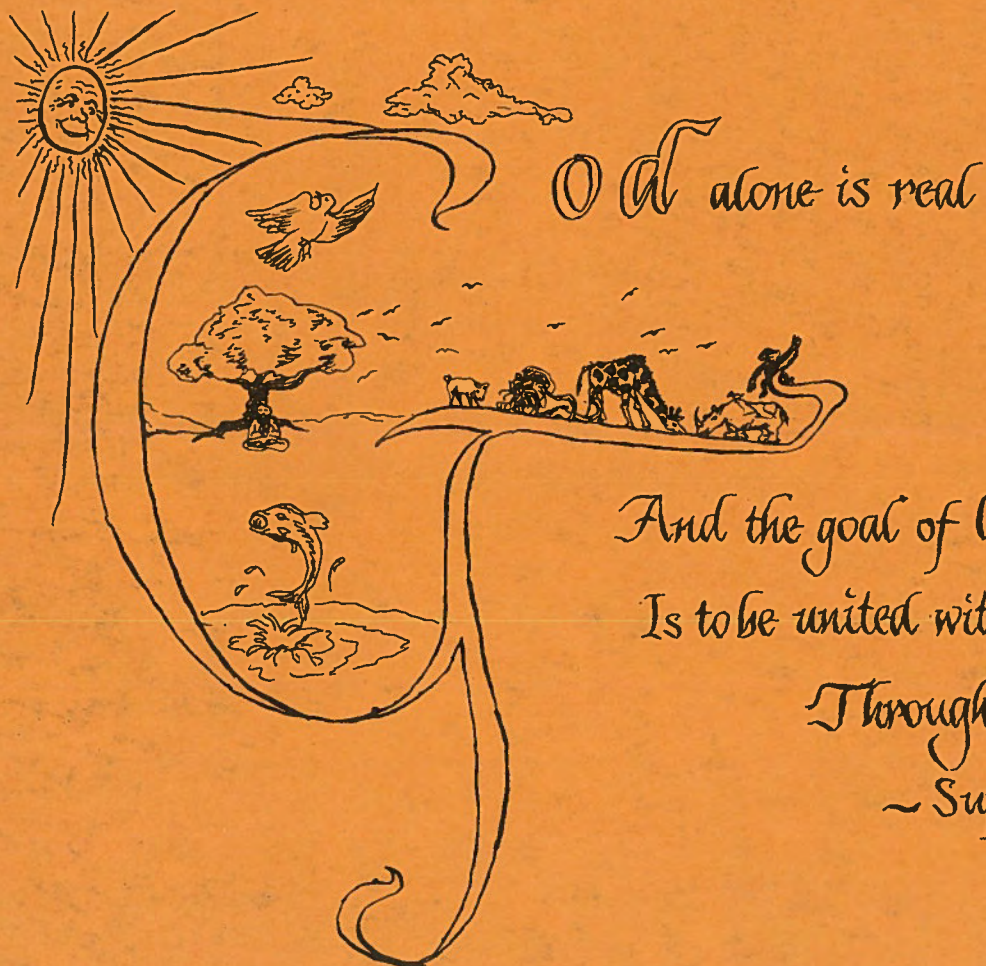 God alone is real
And the goal of
Is to be united wit
Through
~ Su